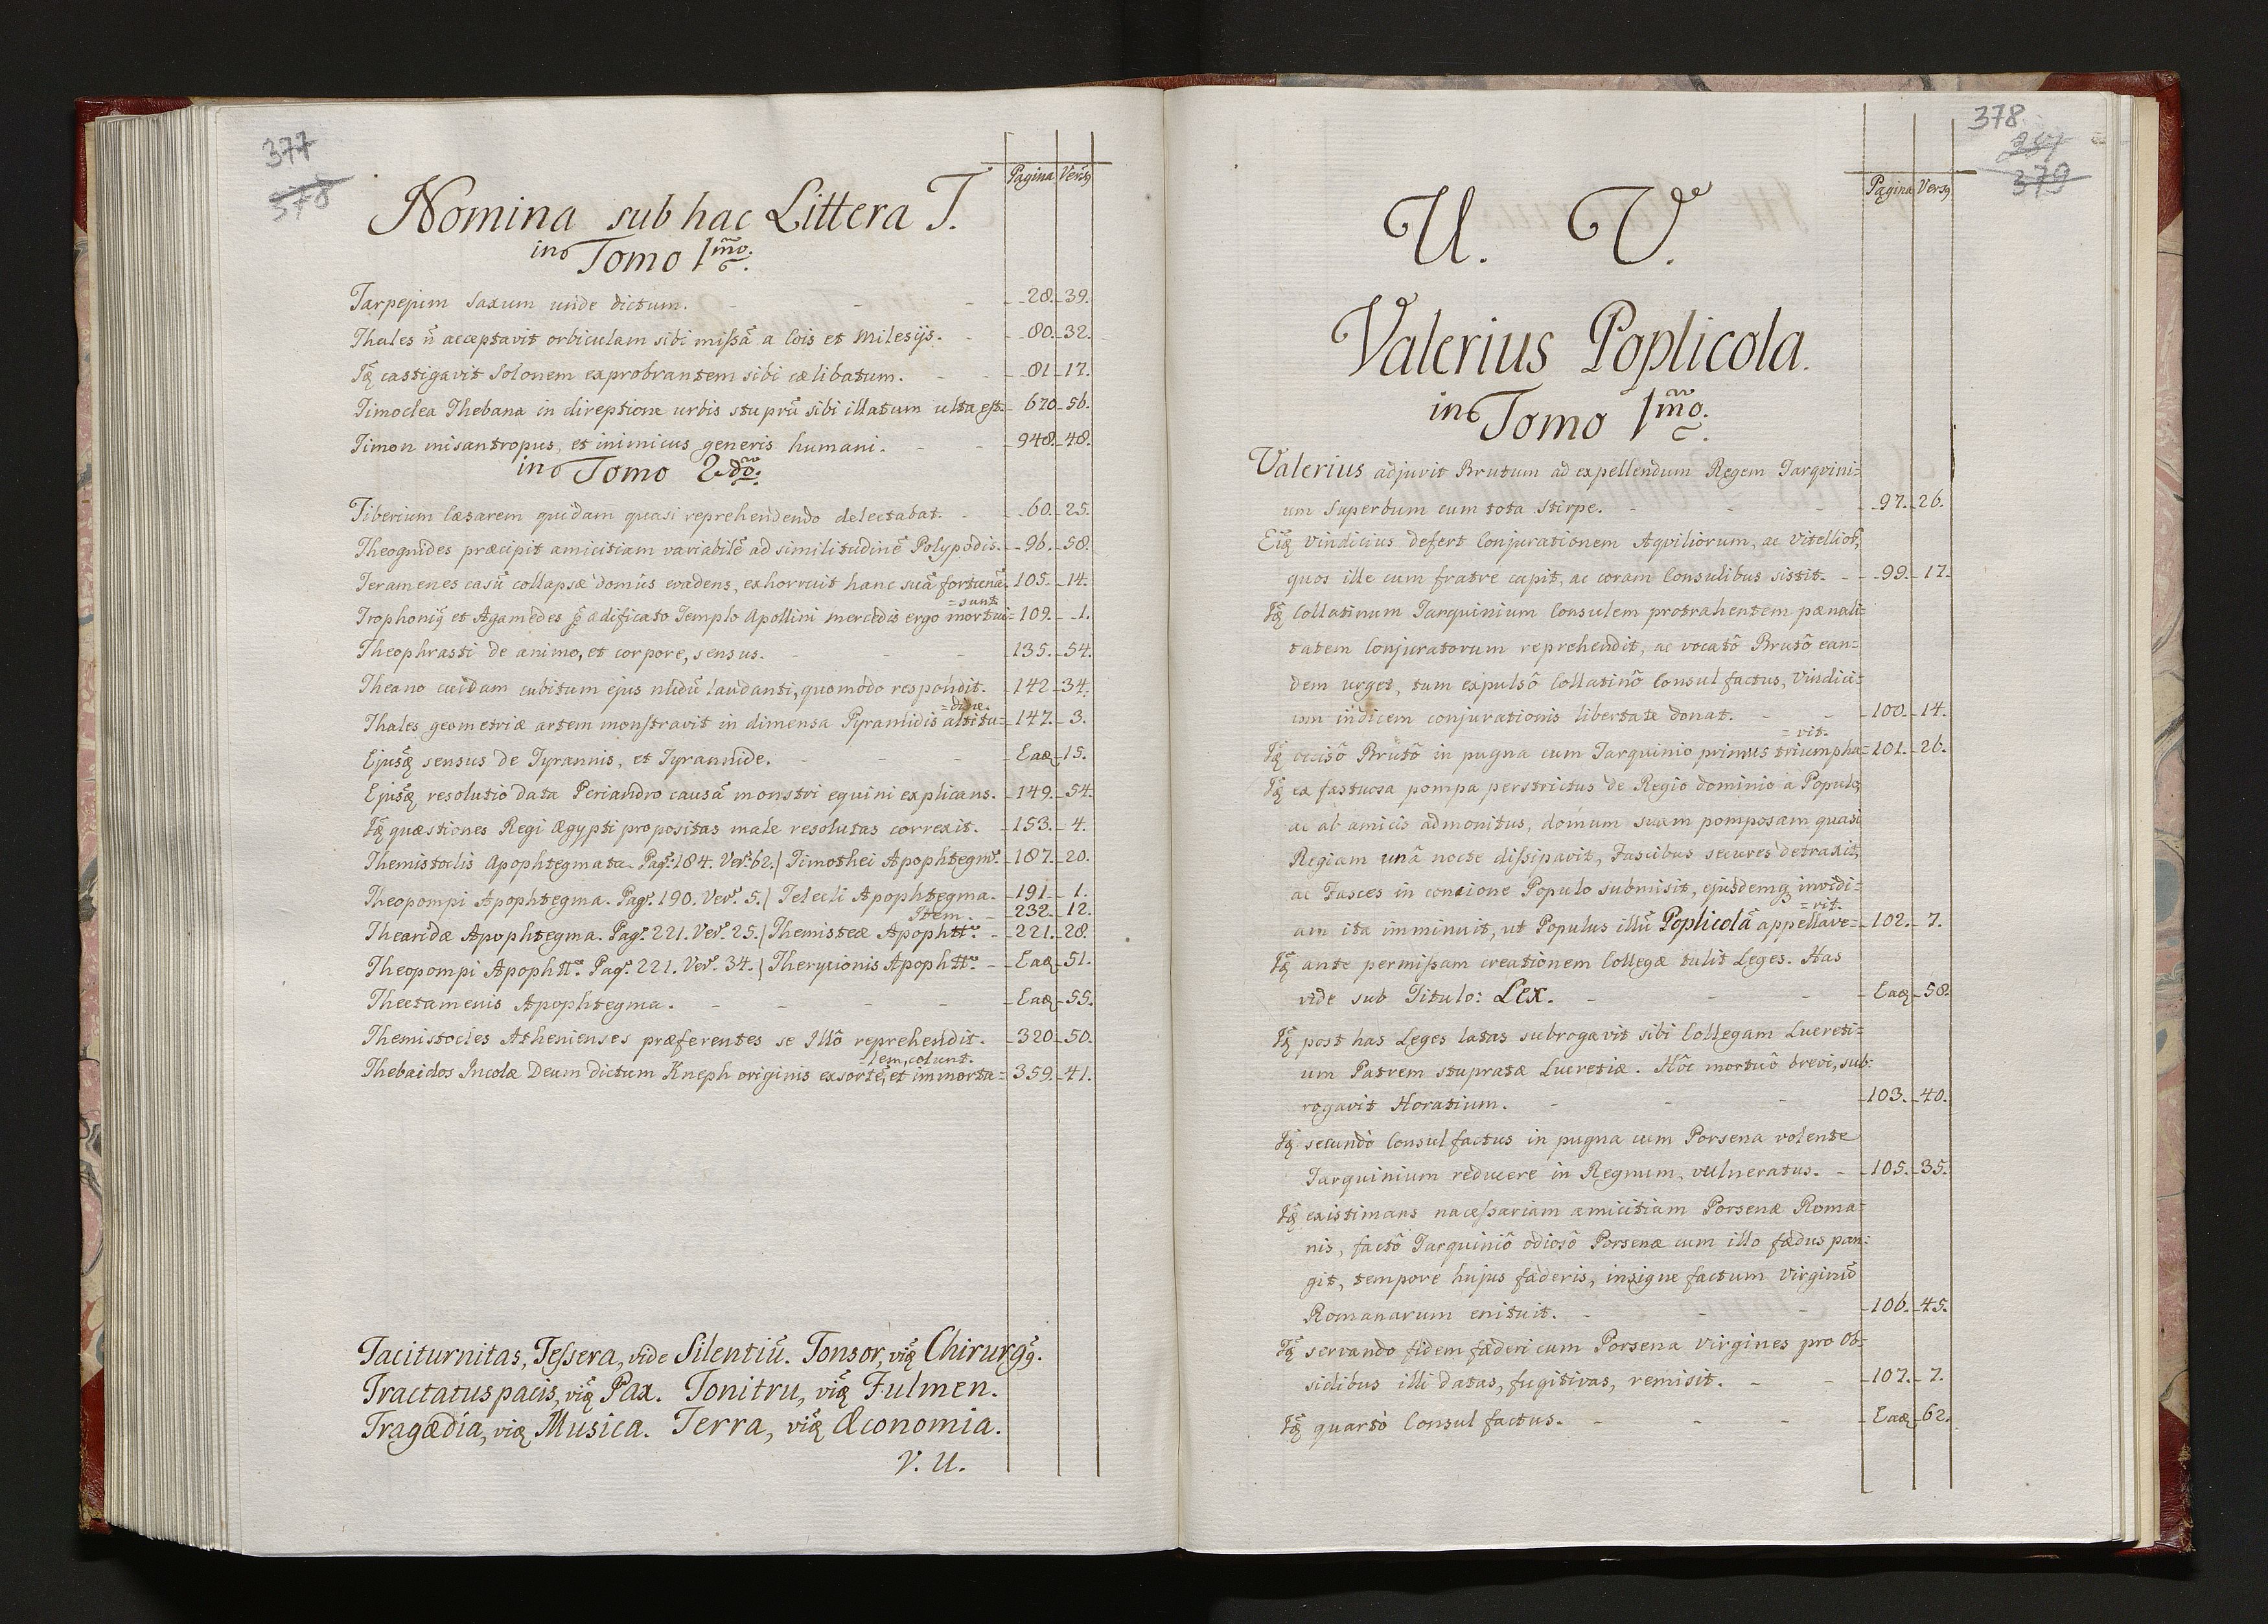 377
378
Pagina Versꝰ
Nomina sub hac Littera T.
in Tomo 1mo.
Tarpejum Saxum unde dictum. - - - 28. 39.
Thales ñ acceptavit orbiculam sibi missã a Cois et Milesijs. - 80. 32.
Idẽ castigavit Solonem exprobrantem sibi cælibatum. - 81. 17.
Timoclea Thebana in direptione urbis stuprũ sibi illatum ulta est. 670. 56.
Timon misantropus, et inimicus generis humani. - - 948. 48.
in Tomo 2do.
Tiberium Cæsarem quidam quasi reprehendendo delectabat. - 60. 25.
Theognides præcipit amicitiam variabilẽ ad similitudinẽ Polypodis. 96. 58.
Teramenes casũ collapsæ domûs evadens, exhorruit hanc suã fortunã. 105. 14.
=sunt.
Trophoniꝰ et Agamedes ꝓ ædificato Templo Apollini mercedis ergo mortui= 109. 1.
Theophrasti de animo, et corpore, sensus. - - 135. 54.
Theano cuidam cubitum ejus nudũ laudanti, quomodo respondit. 142. 34.
=dine.
Thales geometriæ artem monstravit in dimensa Pyramidis altitu= 147. 3.
Ejusdẽ sensus de Tyrannis, et Tyrannide. - - - Eadẽ 15.
Ejusdẽ resolutio data Periandro causã monstri equini explicans. 149. 54.
Idẽ quæstiones Regi Ægypti propositas male resolutas correxit. 153. 4.
Themistoclis Apophtegmata. Pag. 184. Ver. 62. / Timothei Apophtegm. 187. 20.
Theopompi Apophtegma. Pag. 190. Ver. 5. / Telecli Apophtegma. 191. 1.
Item. - 232. 12.
Thearidæ Apophtegma. Pag. 221. Ver. 25. / Themisteæ Apophtt. - 221. 28.
Theopompi Apophtt. Pag. 221. Ver. 34. / Therycionis Apophtt. - Eadẽ 51.
Thectamenis Apophtegma. - - - - Eadẽ 55.
Themistocles Athenienses præferentes se Illô reprehendit. 320. 50.
=lem, colunt.
Thebaidos Incolæ Deum dictum Kneph originis exsortẽ, et immorta= 359. 41.
Taciturnitas, Tessera, vide Silentiũ. Tonsor, vidẽ Chirurgꝰ.
Tractatus pacis, vidẽ Pax. Tonitru, vidẽ Fulmen.
Tragædia, vidẽ Musica. Terra, vidẽ Æconomia.
V. U.
378
379
Pagina Versꝰ
U. V.
Valerius Poplicola.
in Tomo 1mo.
Valerius adjuvit Brutum ad expellendum Regem Tarqvini=
um Superbum cum tota Stirpe. - - - 97. 26.
Eidẽ Vindicius defert Conjurationem Aqviliorum, ac Vitellior,
quos ille cum fratre capit, ac coram Consulibus sistit. - 99. 17.
Idẽ Collatinum Tarquinium Consulem protrahentem pænali=
tatem Conjuratorum reprehendit, ac vocatô Brutô ean=
dem urget, tum expulsô Collatinô Consul factus, Vindici=
um indicem conjurationis libertate donat. - - 100. 14.
=vit.
Idẽ occisô Brutô in pugna cum Tarquinio primus triumpha= 101. 26.
Idẽ ex fastuosa pompa perstrictus de Regio dominio a Populo,
ac ab amicis admonitus, domum suam pomposam quasi
Regiam unâ nocte dissipavit, Fascibus secures detraxit,
ac Fasces in concione Populo submisit, ejusdemq invidi=
=vit.
am ita imminuit, ut Populus illũ Poplicolã appellave= 102. 7.
Idẽ ante permissam creationem Collegæ tulit Leges. Has
vide sub Titulo: Lex. - - - Eadẽ 58.
Idẽ post has Leges latas subrogavit sibi Collegam Lucreti=
um Patrem stupratæ Lucretiæ. Hôc mortuô brevi, sub=
rogavit Horatium. - - - 103. 40.
Idẽ secundò Consul factus in pugna cum Porsena volente
Tarquinium reducere in Regnum, vulneratus. - 105. 35.
Idẽ existimans necessariam amicitiam Porsenæ Roma=
nis, factô Tarquiniô odiosô Porsenæ cum illo fædus pan=
git, tempore hujus fæderis, insigne factum Virginũ
Romanarum enituit. - - - 106. 45.
Idẽ servando fidem fæderi cum Porsena Virgines pro Ob=
sidibus illi datas, fugitivas, remisit. - - 107. 7.
Idẽ quartò Consul factus. - - - Eadẽ 62.